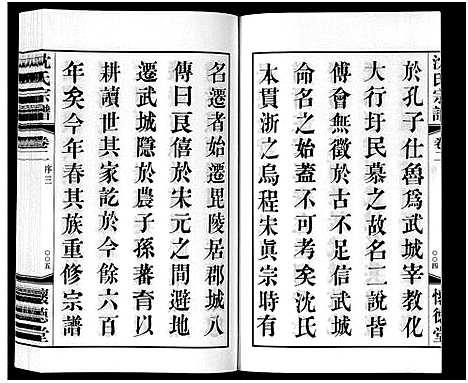 沈氏宗譜
卷二
〇〇四
懷德堂
於孔子仕魯為武城宰教化
大行圩民慕之二說皆
傅會無徵於古不信武城
命名之始蓋不可考矣沈氏
本貫浙之烏程宋眞宗時有
名遷者始遷毘陵居郡城八
傳曰艮僖於宋元之間避地
遷武城隱於農子孫蕃育以
耕讀世其家訖於今餘六百
年矣今年春其族重修宗譜
沈氏宗譜
卷一
序三
〇〇五
懷德堂